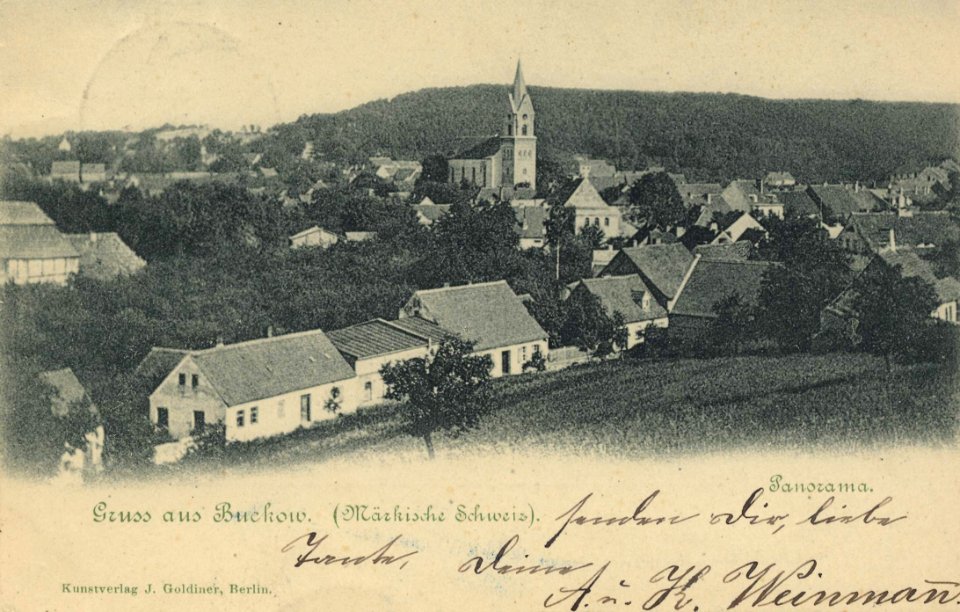 Panorama.
Gruss aus Buckow. (Märkische Schweiz).
senden Dir, liebe
Tante, Deine
A. u. K. Weinmann.
Kunstverlag J. Goldiner, Berlin.